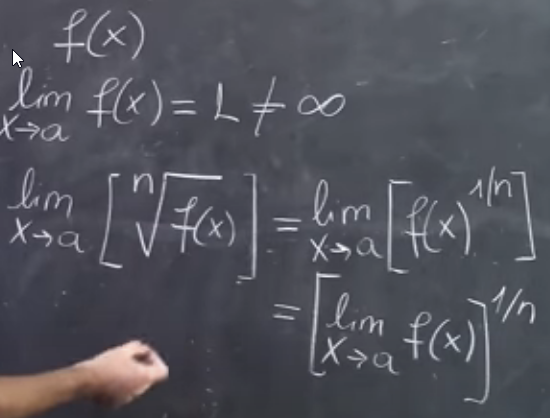 f(x)
lim x→a f(x) = L ≠ ∞
lim x→a [ⁿ√f(x)] = lim x→a [f(x)^1/n]
= [lim x→a f(x)]^1/n